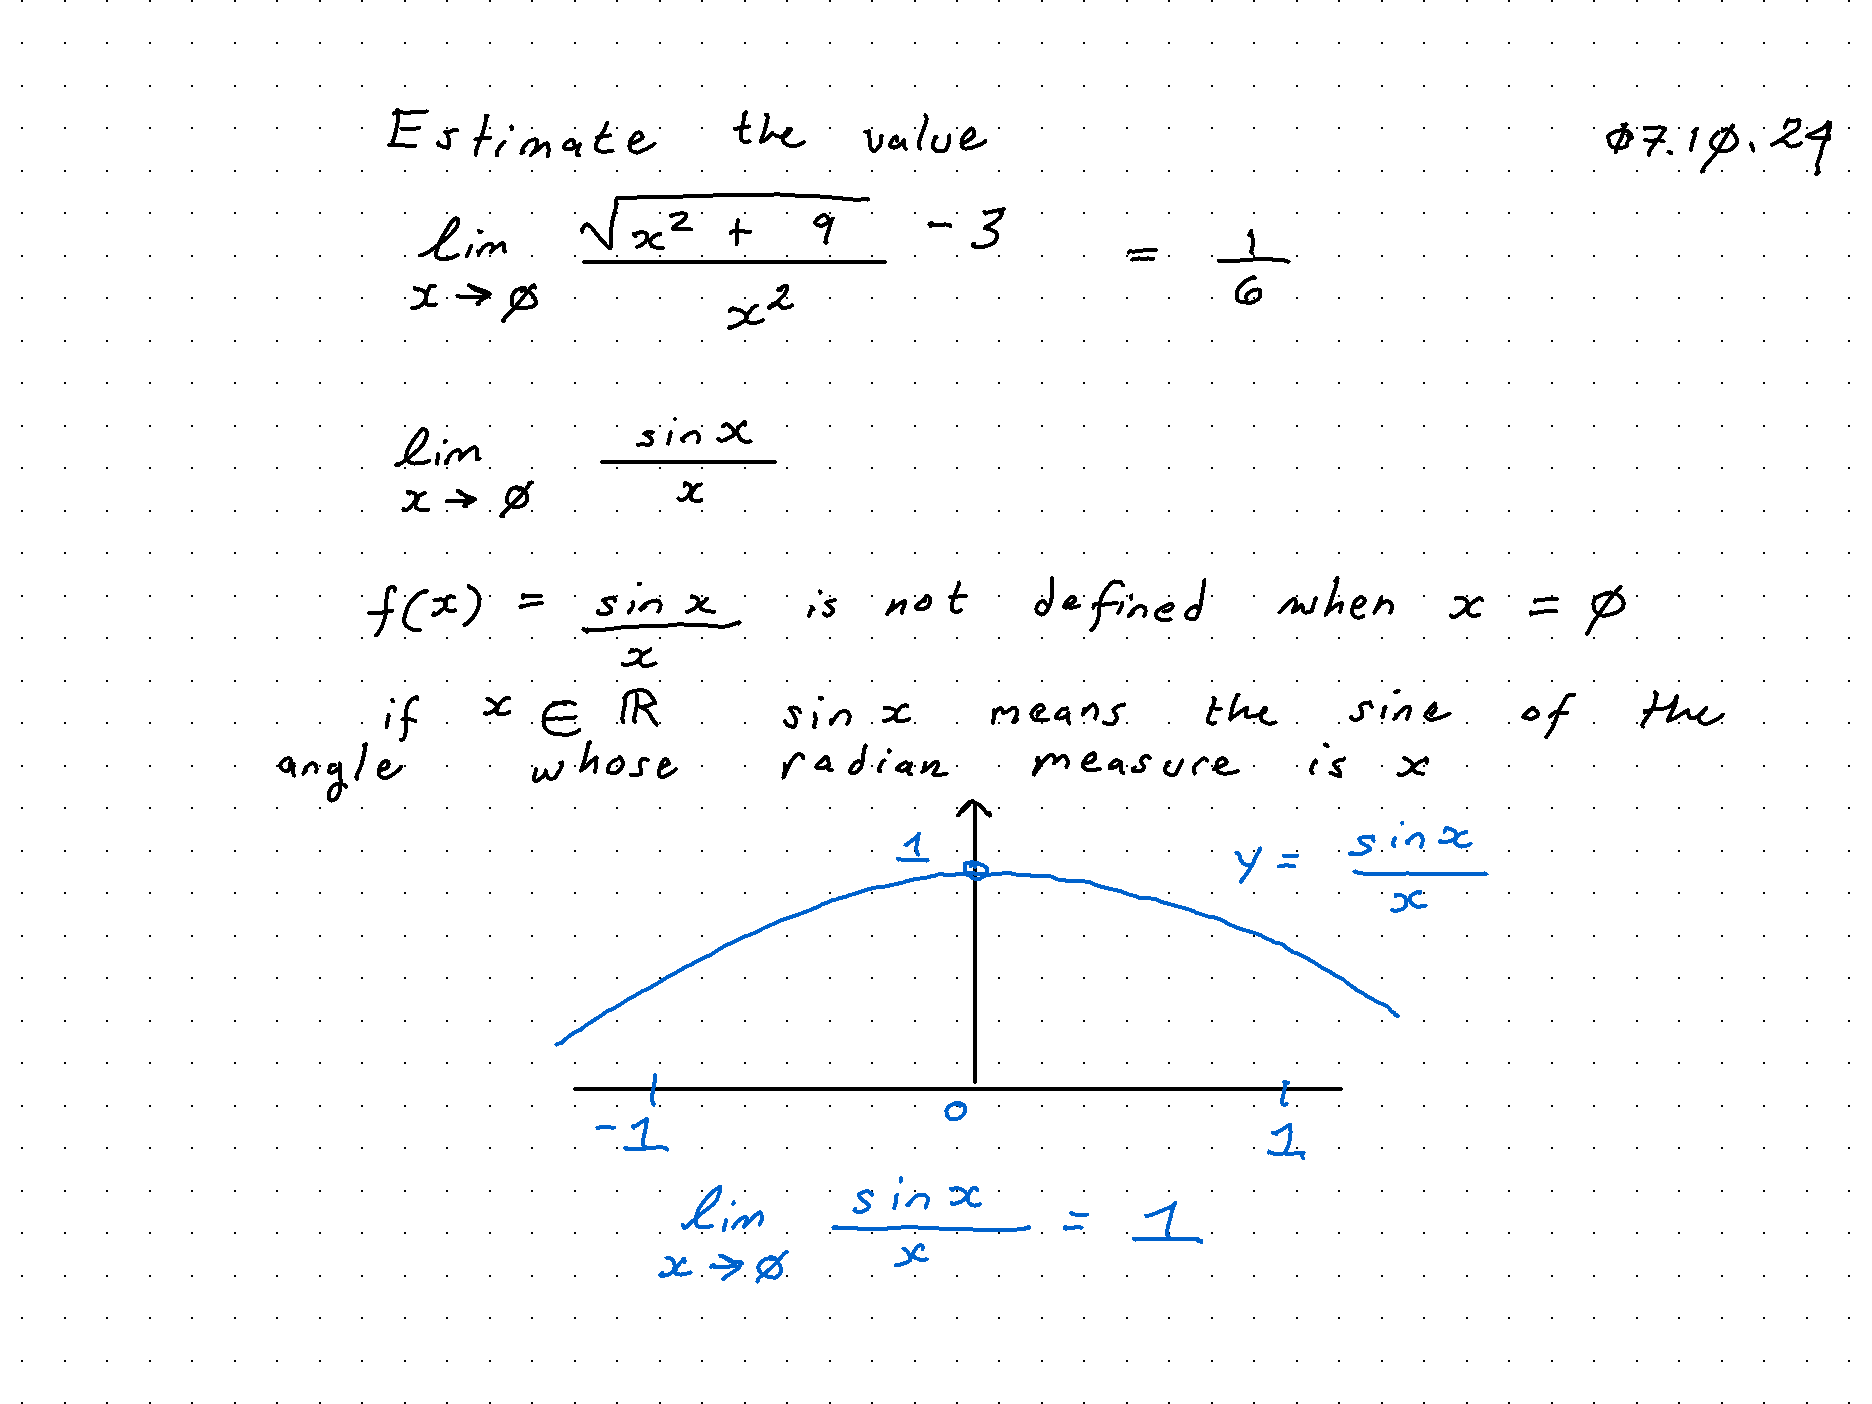 Estimate the value
ø7.1ø.24
lim x→ø (√(x² + 9) - 3) / x² = 1/6
lim x→ø sin x / x
f(x) = sin x / x is not defined when x = ø
if x ∈ ℝ sin x means the sine of the
angle whose radian measure is x
1
y = sin x / x
-1 0 1
lim x→ø sin x / x = 1